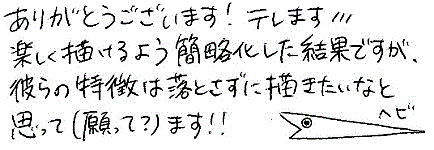 ありがとうございます！テレます〃〃
楽しく描けるよう簡略化した結果ですが、
彼らの特徴は落とさずに描きたいなと
思って(願って？)ます！！
ヘビ